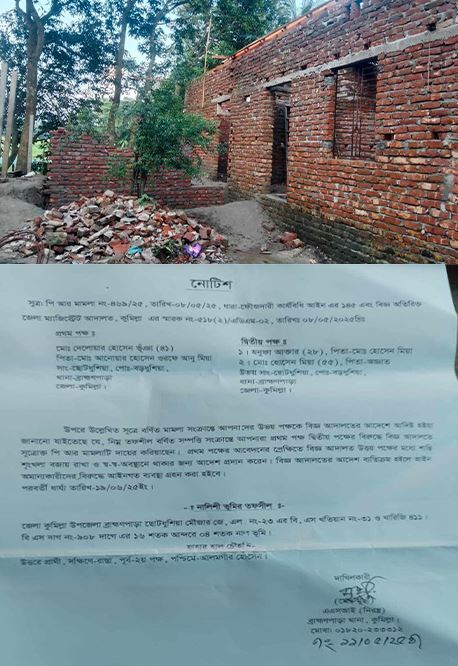 নোটিশ
সূত্র: পি আর মামলা নং-৪৬৯/২৫, তারিখ-০৮/০৫/২৫, ধারা-ফৌজদারী কার্যবিধি আইন এর ১৪৫ এবং বিজ্ঞ অতিরিক্ত
জেলা ম্যাজিস্ট্রেট আদালত, কুমিল্লা এর স্মারক নং-৫১৮(২)/এডিএম-০২, তারিখঃ ০৮/০৫/২০২৫খ্রিঃ
প্রথম পক্ষ ঃ
মোঃ দেলোয়ার হোসেন ভূঁঞা (৪১)
পিতা-মোঃ আনোয়ার হোসেন ওরফে আনু মিয়া
সাং-ছোটধুশিয়া, পোঃ-বড়ধুশিয়া,
থানা-ব্রাহ্মণপাড়া
জেলা-কুমিল্লা।
দ্বিতীয় পক্ষ ঃ
১। মনুজা আক্তার (২৮), পিতা-মোঃ হোসেন মিয়া
২। মোঃ হোসেন মিয়া (৫৫), পিতা-অজ্ঞাত
উভয় সাং-ছোটধুশিয়া, পোঃ-বড়ধুশিয়া,
থানা-ব্রাহ্মণপাড়া
জেলা-কুমিল্লা।
উপরে উল্লেখিত সূত্রে বর্ণিত মামলা সংক্রান্তে আপনাদের উভয় পক্ষকে বিজ্ঞ আদালতের আদেশে আদিষ্ট হইয়া
জানানো যাইতেছে যে, নিম্ন তফশীল বর্ণিত সম্পত্তি সংক্রান্তে আপনারা প্রথম পক্ষ দ্বিতীয় পক্ষের বিরুদ্ধে বিজ্ঞ আদালতে
সূত্রোক্ত পি আর মামলাটি দায়ের করিয়াছেন। প্রথম পক্ষের আবেদনের প্রেক্ষিতে বিজ্ঞ আদালত উভয় পক্ষের মধ্যে শান্তি
শৃংখলা বজায় রাখা ও স্ব-স্ব-অবস্থানে থাকার জন্য আদেশ প্রদান করেন। বিজ্ঞ আদালতের আদেশ ব্যতিক্রম হইলে আইন
অমান্যকারীদের বিরুদ্ধে আইনগত ব্যবস্থা গ্রহন করা হইবে।
পরবর্তী ধার্য্য তারিখ-১৯/০৬/২৫ইং।
-ঃ নালিশী ভূমির তফসীল ঃ-
জেলা কুমিল্লা উপজেলা ব্রাহ্মণপাড়া ছোটধুশিয়া মৌজার জে, এল, নং-২৩ এর বি, এস খতিয়ান নং-৩১ ও খারিজি ৪১১।
বি এস দাগ নং-৯০৮ দাগে এর ১৬ শতক আন্দরে ০৪ শতক নাল ভূমি।
উত্তরে প্রার্থী, দক্ষিণে-রাস্তা, পূর্ব-২য় পক্ষ, পশ্চিমে-আলমগীর হোসেন।
দাখিলকারী
এএসআই (নিরস্ত্র)
ব্রাহ্মণপাড়া থানা, কুমিল্লা।
মোবাঃ ০১৮২০-২৩৩৩১২